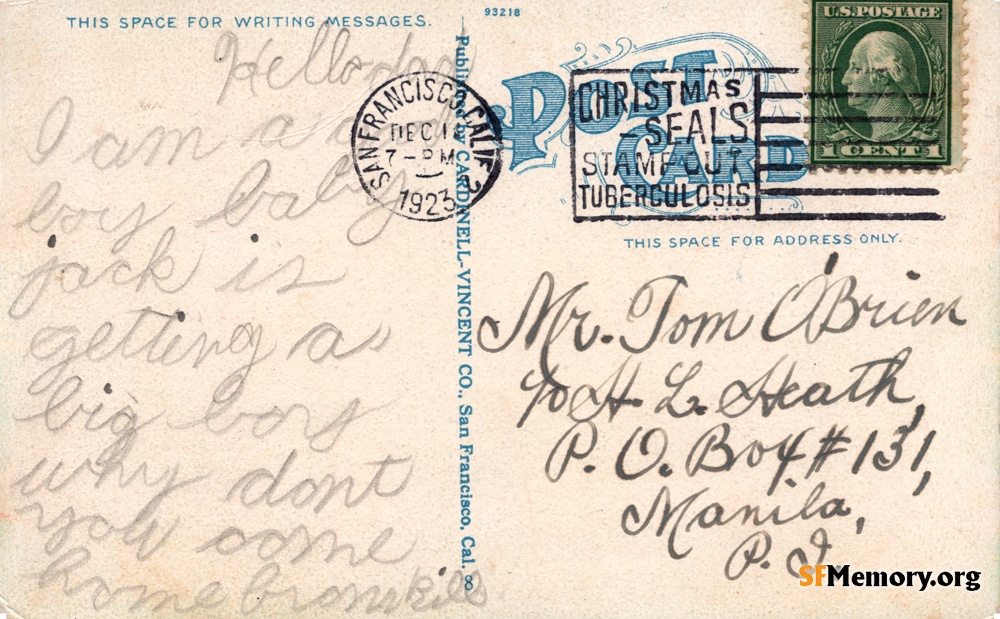 THIS SPACE FOR WRITING MESSAGES.
93218
Hello
I am a
boy baby
jack is
getting a
big boy
why dont
you come
home
Published by CARDINELL-VINCENT CO., San Francisco, Cal.
SAN FRANCISCO, CALIF.
DEC
7-PM
1923
POST CARD
CHRISTMAS
SEALS
STAMP OUT
TUBERCULOSIS
U.S. POSTAGE
1 CENT 1
THIS SPACE FOR ADDRESS ONLY.
Mr. Tom O'Brien
c/o H. L. Heath,
P. O. Box #131,
Manila,
P. I.
SFMemory.org